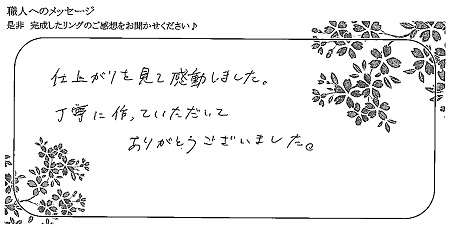 職人へのメッセージ
是非 完成したリングのご感想をお聞かせください♪
仕上がりを見て感動しました。
丁寧に作っていただいて
ありがとうございました。